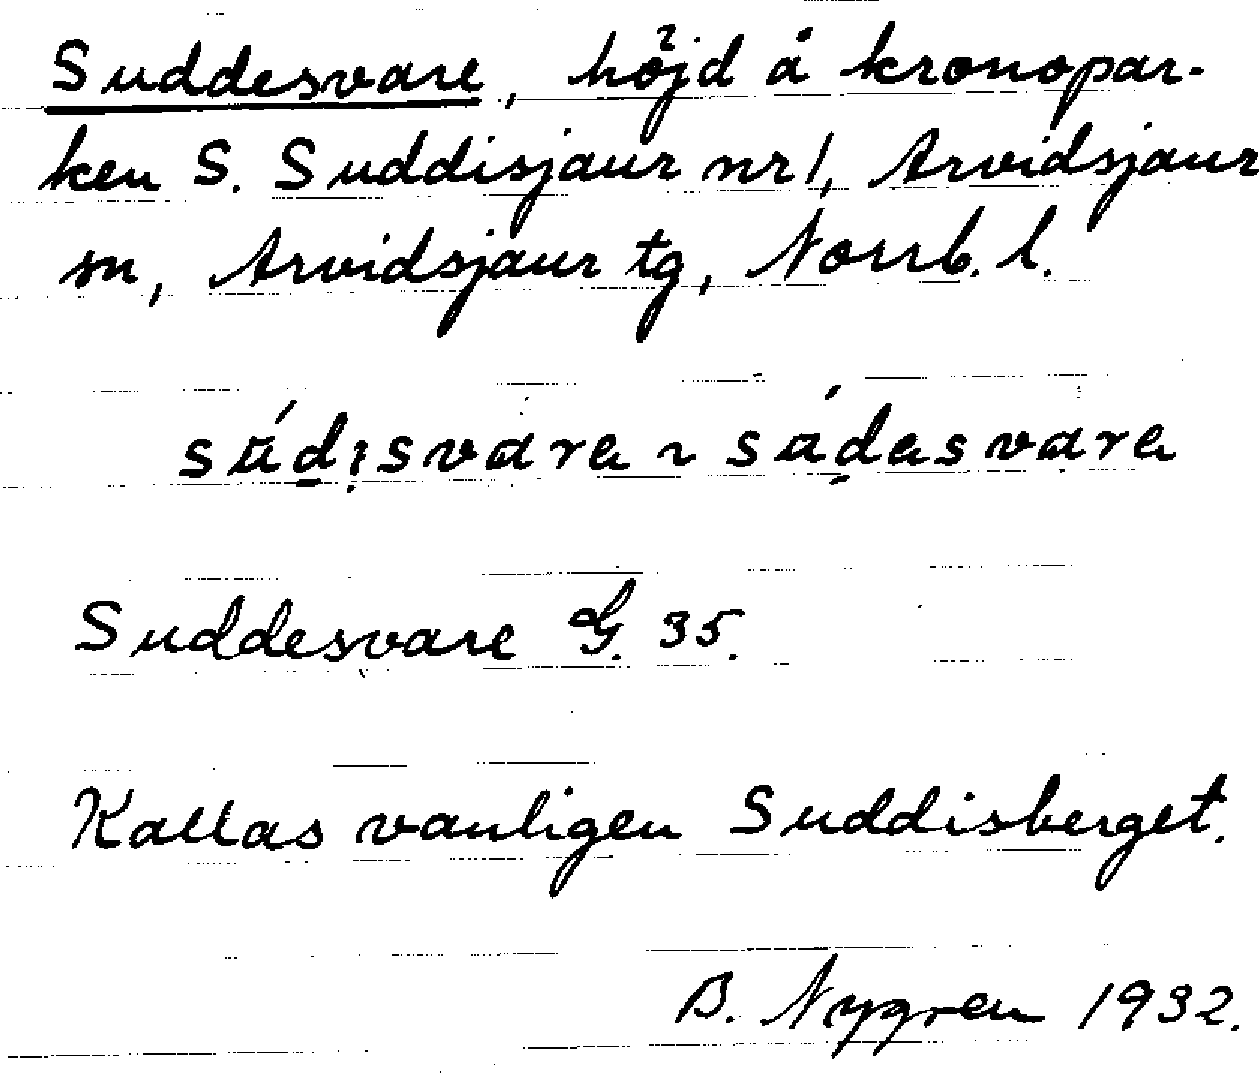 Suddesvare, höjd å kronopar-
ken S. Suddisjaur nr 1, Arvidsjaur
sn, Arvidsjaur tg, Norrb. l.
Suddesvare G. 35.
Kallas vanligen Suddisberget.
B. Nygren 1932.